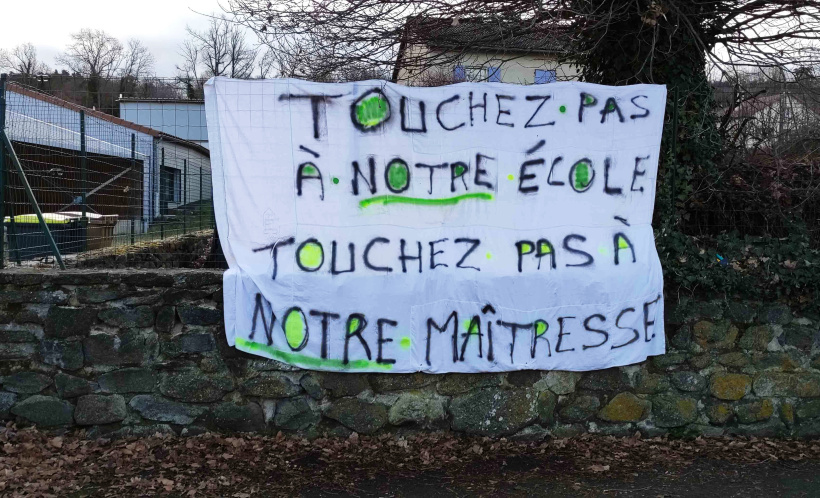 TOUCHEZ·PAS
À·NOTRE·ÉCOLE
TOUCHEZ·PAS·À
NOTRE·MAÎTRESSE